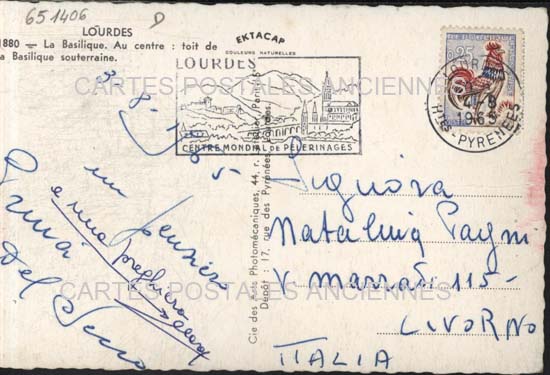 651406
D
LOURDES
1880 — La Basilique. Au centre : toit de
la Basilique souterraine.
EKTACAP
COULEURS NATURELLES
LOURDES
CENTRE MONDIAL DE PÈLERINAGES
0,25
4-8
1965
Htes-PYRÉNÉES
CARTES POSTALES ANCIENNES
3-8-1965
un pensiero
e una preghiera
Cie des Arts Photomécaniques, 44, r.
Dépôt : 17, rue des Pyrénées, Lourdes.
Signora
Natalina Pagni
V. Marradi 115-
LIVORNO
ITALIA
CARTES POSTALES ANCIENNES